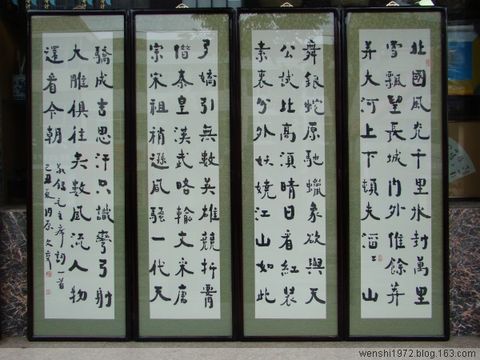 北國風光千里冰封萬里
雪飄望長城内外惟餘莽
莽大河上下頓失滔〻山
舞銀蛇原馳蠟象欲與天
公試比高須晴日看紅裝
素裹分外妖嬈江山如此
多嬌引無數英雄競折腰
惜秦皇漢武略輸文采唐
宗宋祖稍遜風騷一代天
驕成吉思汗只識彎弓射
大雕俱往矣數風流人物
還看今朝
敬錄毛主席詞一首
己丑夏月
wenshi1972.blog.163.com